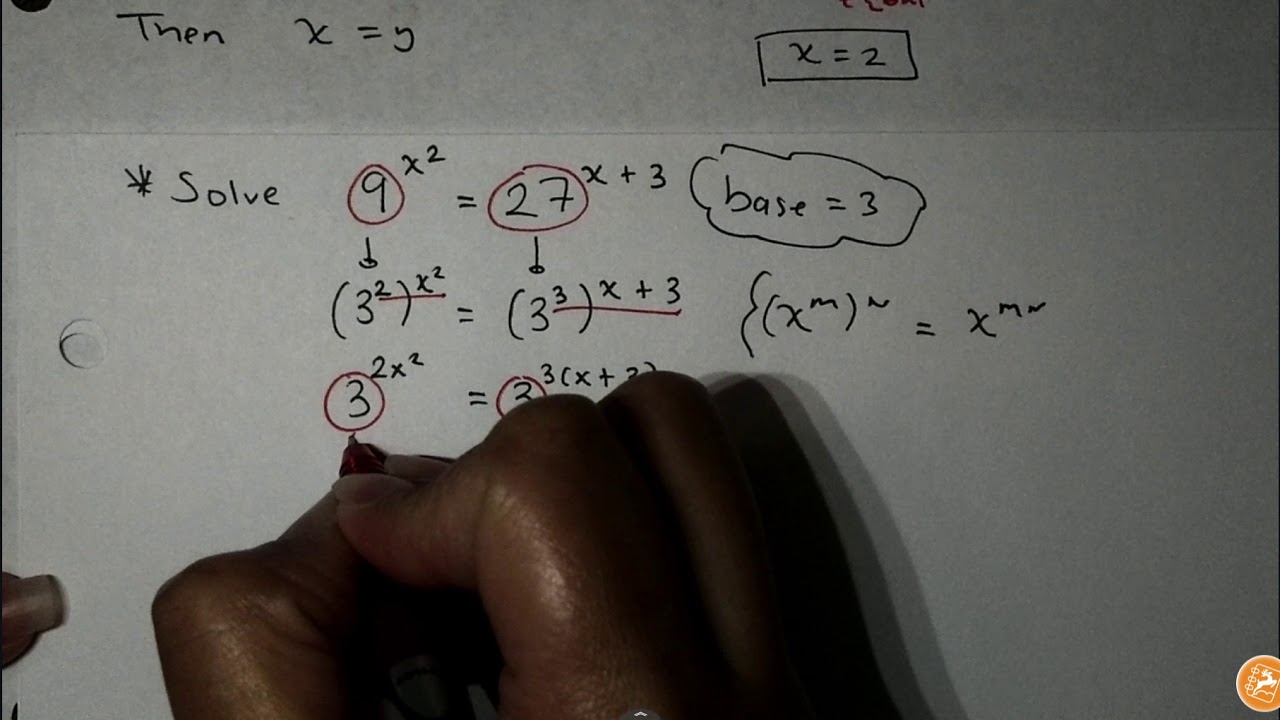 Then x = y
x = 2
* Solve 9^x² = 27^x + 3 base = 3
(3²)^x² = (3³)^x + 3 {(x^m)^n = x^mn
3^2x² = 3^3(x +